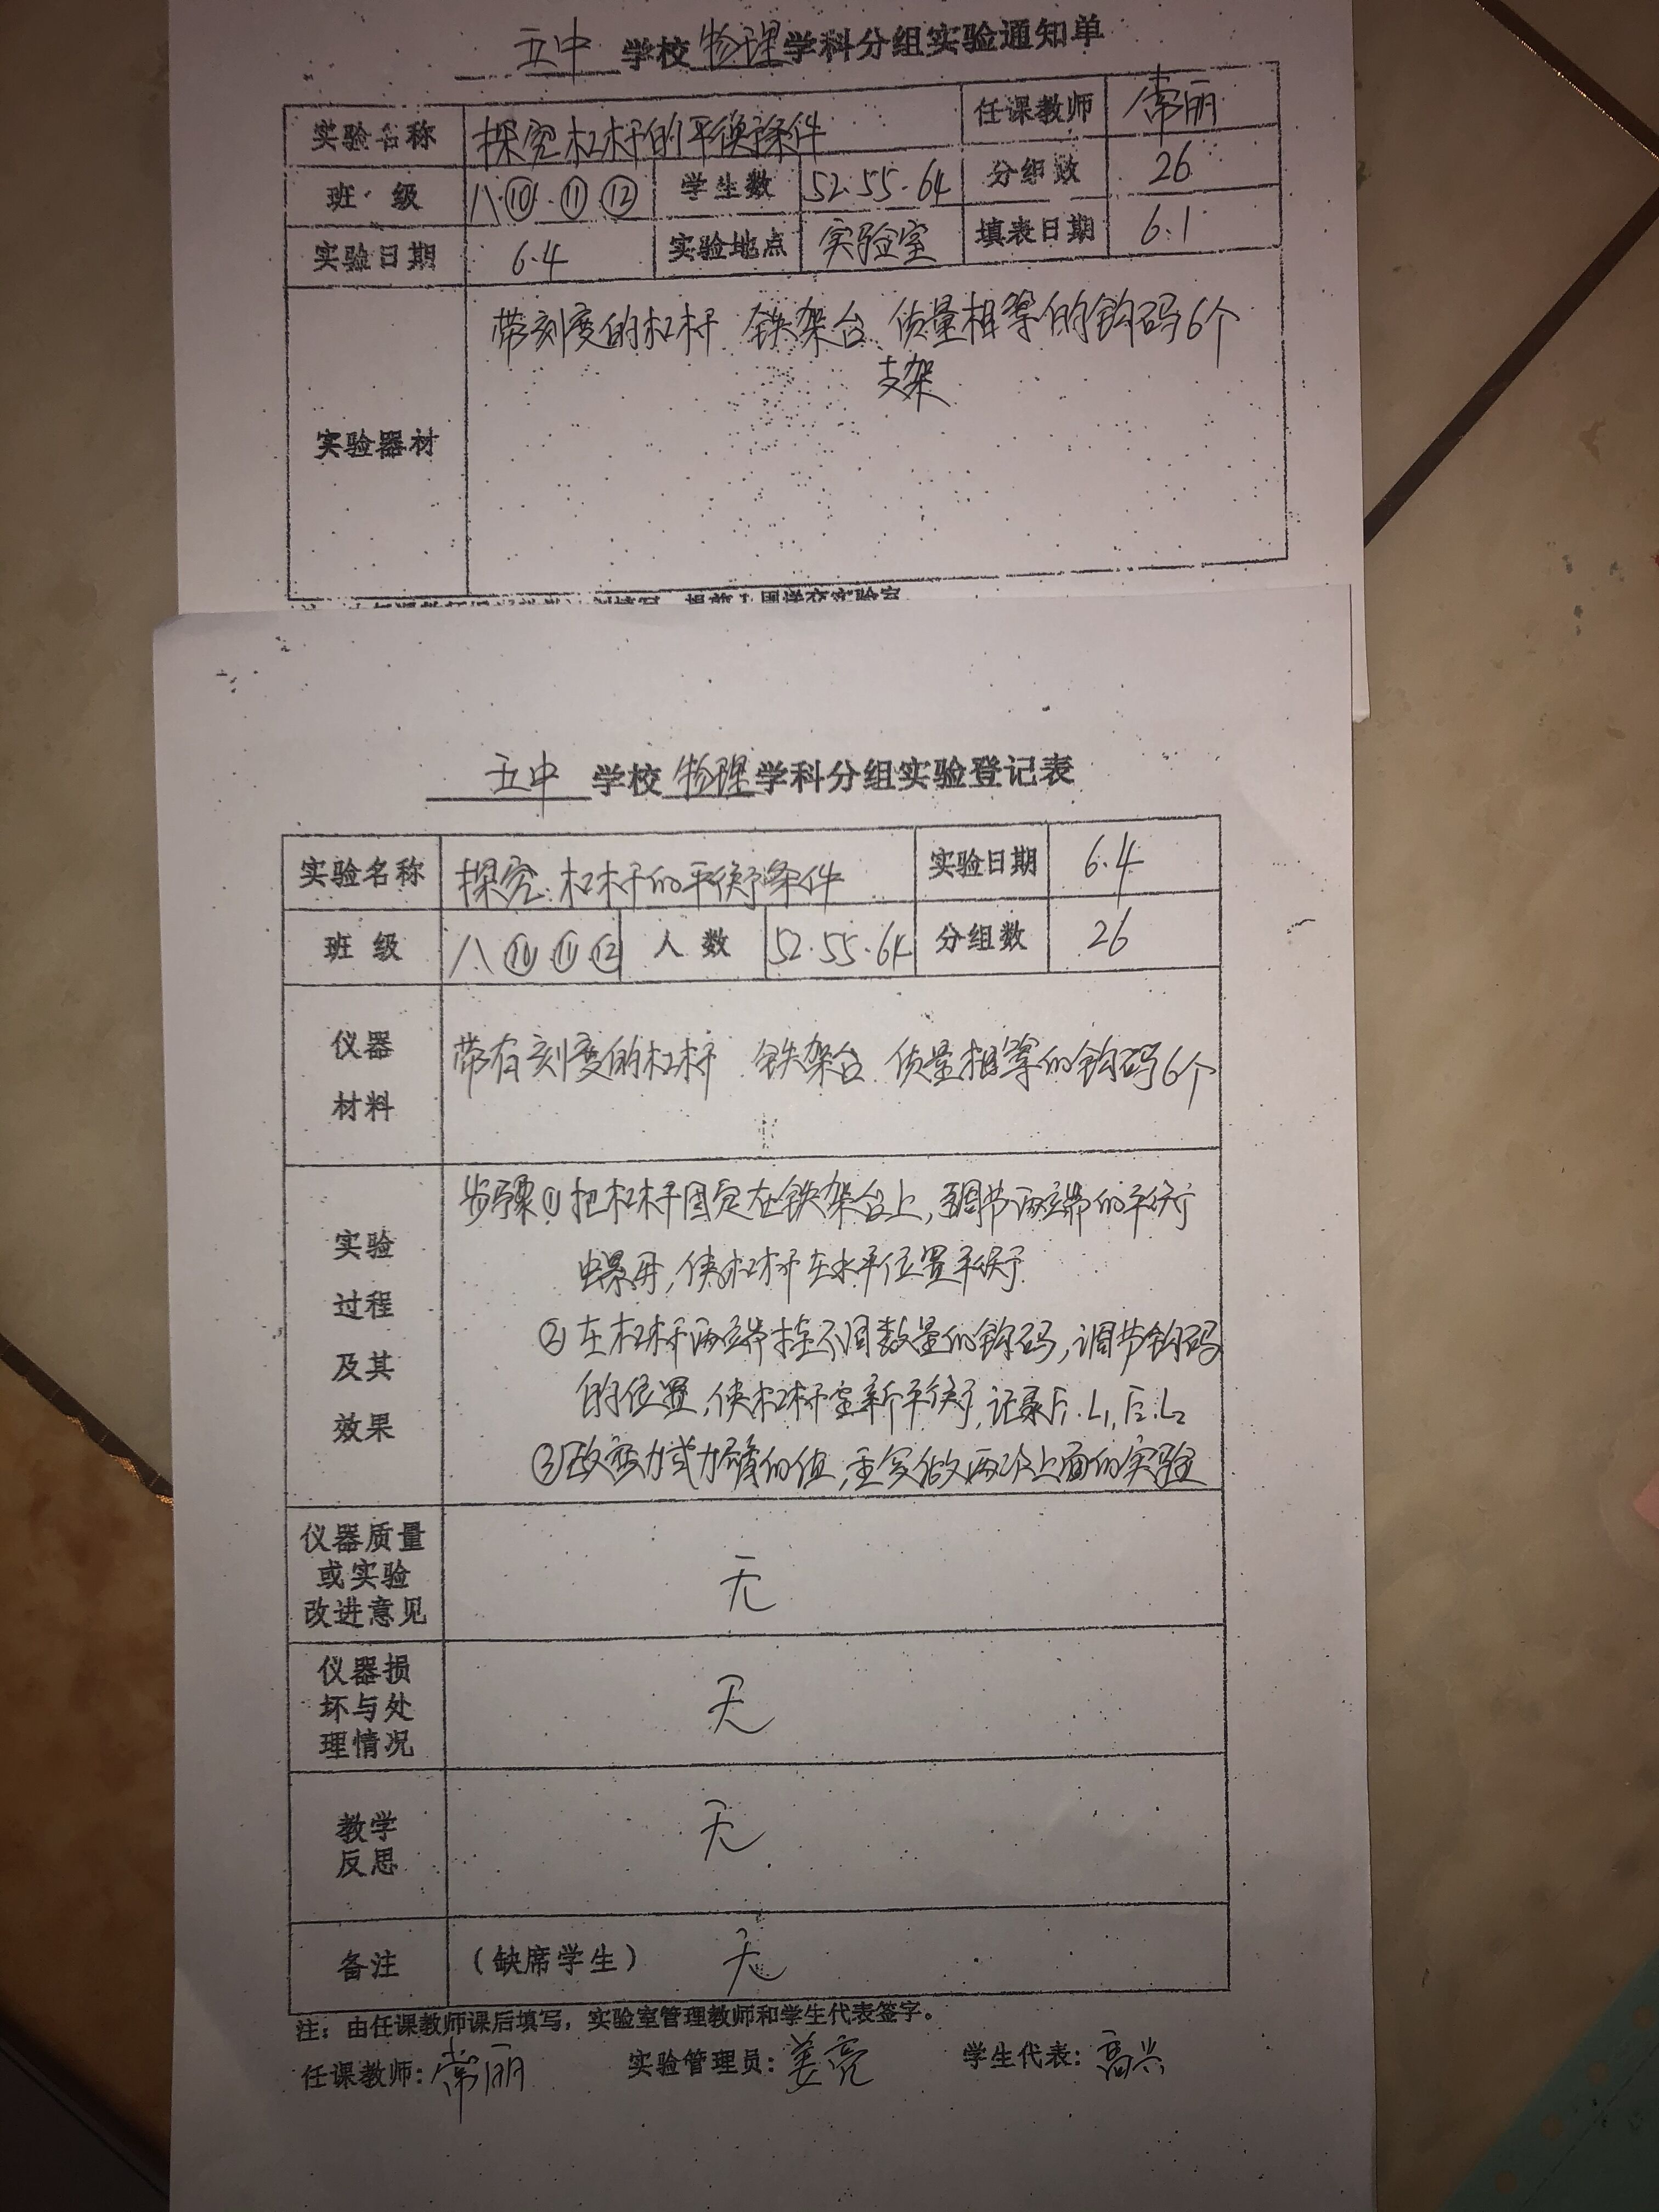 五中学校物理学科分组实验通知单
实验名称 探究杠杆的平衡条件 任课教师 常丽
班级 八⑩ ⑪ ⑫ 学生数 52.55.64 分组数 26
实验日期 6.4 实验地点 实验室 填表日期 6.1
带刻度的杠杆 铁架台、质量相等的钩码6个
支架
实验器材
五中学校物理学科分组实验登记表
实验名称 探究杠杆的平衡条件 实验日期 6.4
班级 八⑩ ⑪ ⑫ 人数 52.55.64 分组数 26
仪器
材料
带有刻度的杠杆 铁架台 质量相等的钩码6个
实验
过程
及其
效果
步骤①把杠杆固定在铁架台上,调节两端的平衡
螺母,使杠杆在水平位置平衡
②在杠杆两端挂不同数量的钩码,调节钩码
的位置,使杠杆重新平衡,记录F₁.L₁,F₂.L₂
③改变力或力臂的值,重复做两次上面的实验
仪器质量
或实验
改进意见
无
仪器损
坏与处
理情况
无
教学
反思
无
备注 (缺席学生) 无
注:由任课教师课后填写,实验室管理教师和学生代表签字。
任课教师:常丽 实验管理员:姜亮 学生代表:高兴